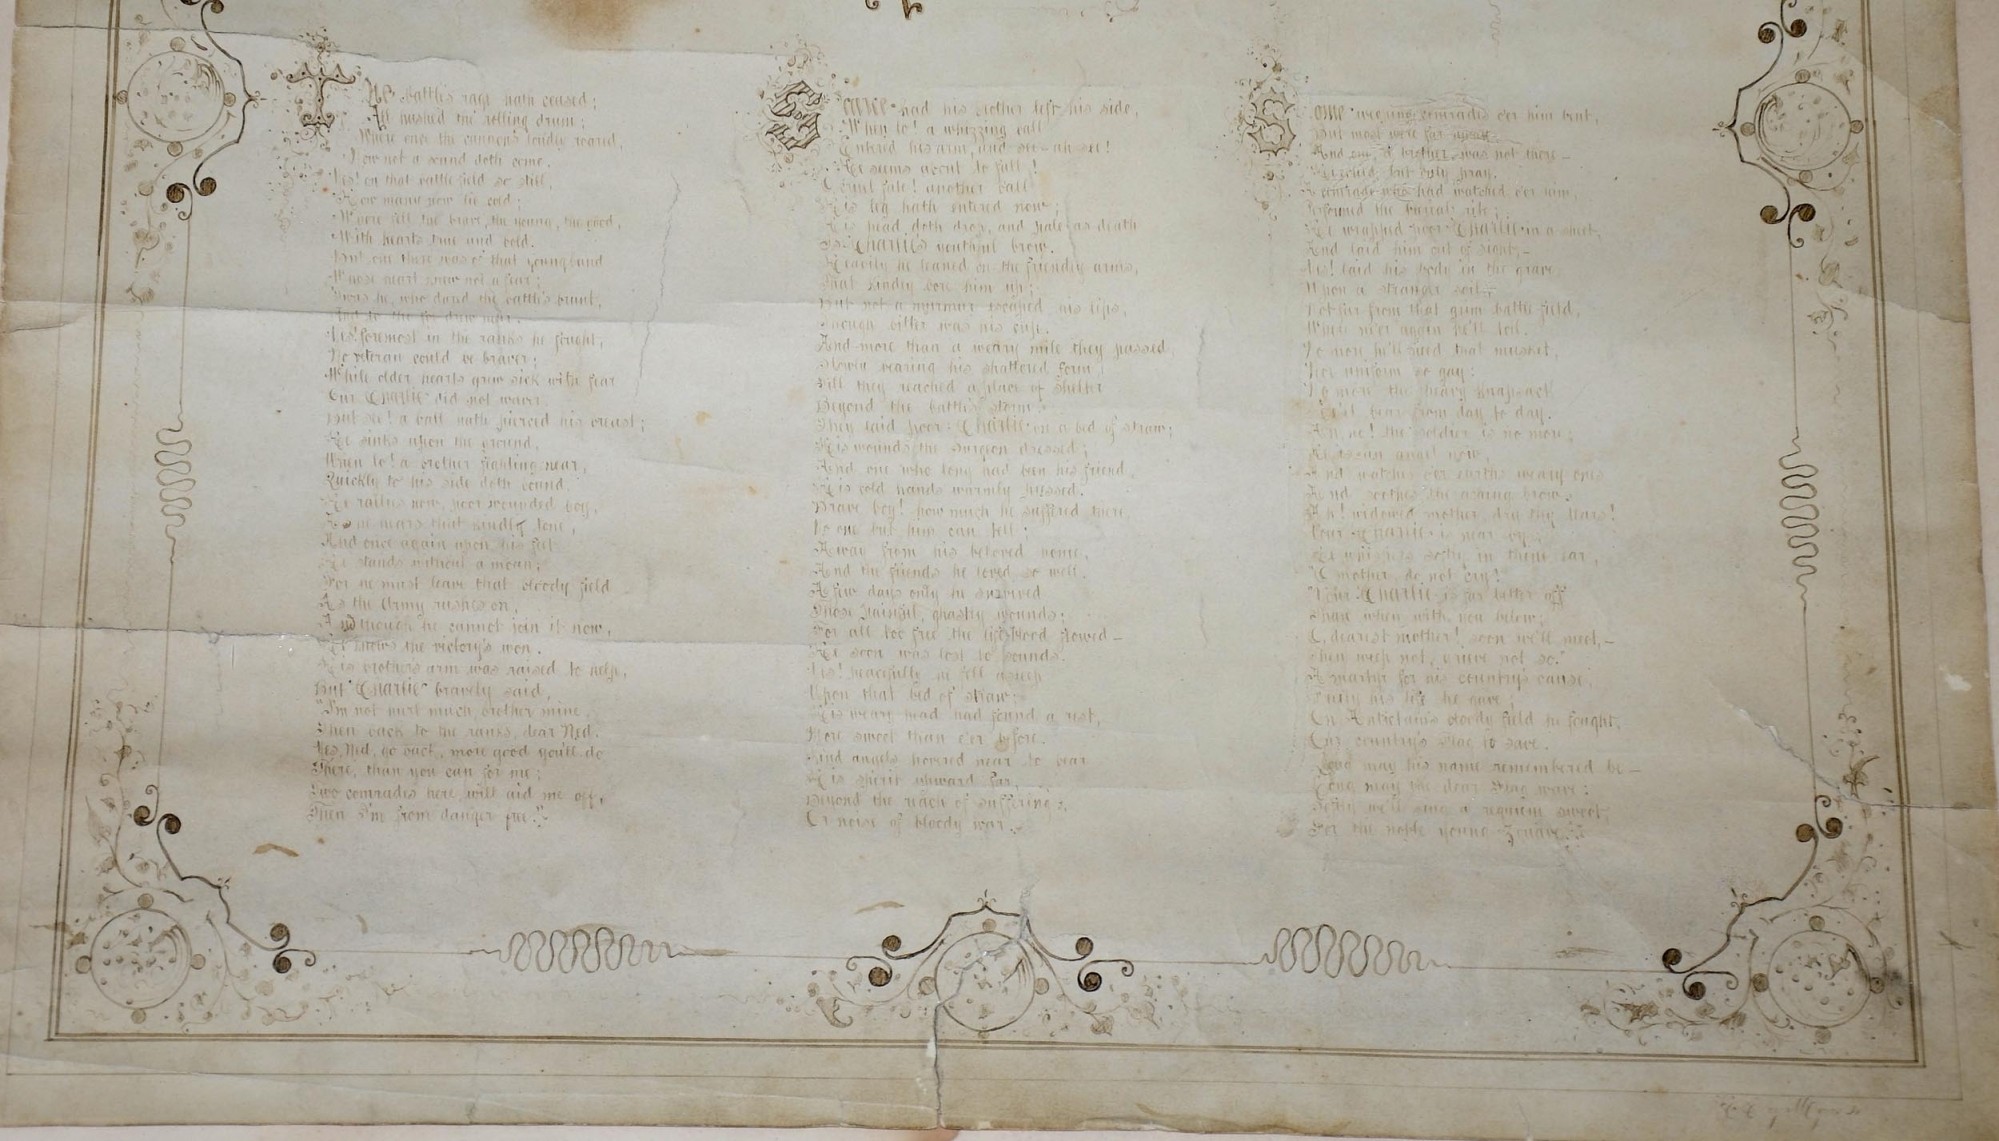 The battle's rage hath ceased;
All hushed the rolling drum;
Where once the cannons loudly roared,
Now not a sound doth come.
Yes! on that battle field so still,
How many now lie cold;
Where fell the brave, the young, the good,
With hearts true and bold.
But one there was of that young band
Whose heart knew not a fear;
'Twas he, who dared the battle's brunt,
And to the foe drew near.
Yes! foremost in the ranks he fought,
No veteran could be braver;
While older hearts grew sick with fear
Our "Charlie" did not waver.
But see! a ball hath pierced his breast;
He sinks upon the ground,
When lo! a brother fighting near,
Quickly to his side doth bound.
He rallies now, poor wounded boy,
As he hears that kindly tone,
And once again upon his feet
He stands without a moan;
For he must leave that bloody field
As the Army rushes on,
And though he cannot join it now,
He knows the victory's won.
His brother's arm was raised to help,
But "Charlie" bravely said,
"I'm not hurt much, brother mine,
Then back to the ranks, dear Ned.
Yes, Ned, go back, more good you'll do
There, than you can for me;
Two comrades here, will aid me off,
Then I'm from danger free."
Scarce had his brother left his side,
When lo! a whizzing ball
Entered his arm, and see - ah see!
He seems about to fall!
Cruel fate! another ball
His leg hath entered now;
His head doth drop, and pale as death
Is "Charlie's" youthful brow.
Heavily he leaned on the friendly arms,
That kindly bore him up;
But not a murmur escaped his lips,
Though bitter was his cup.
And more than a weary mile they passed,
Slowly bearing his shattered form,
Till they reached a place of shelter
Beyond the battle's storm.
They laid poor "Charlie" on a bed of straw;
His wounds the Surgeon dressed;
And one who long had been his friend,
His cold hands warmly pressed.
Brave boy! how much he suffered there,
No one but him can tell;
Away from his beloved home,
And the friends he loved so well.
A few days only he survived
Those painful, ghastly wounds;
For all too free the life blood flowed -
He soon was lost to sounds.
Yes! peacefully he fell asleep
Upon that bed of straw;
His weary head had found a rest,
More sweet than e'er before.
And angels hovered near to bear
His spirit upward far,
Beyond the reach of suffering,
Or noise of bloody war.
Some weeping comrades o'er him bent,
But most were far
And one, a brother was not there -
but only pray.
A comrade who had watched o'er him,
Performed the burial rite;
He wrapped poor "Charlie" in a sheet,
And laid him out of sight, -
Yes! laid his body in the grave
Upon a stranger soil,
Not far from that grim battle field,
Where ne'er again he'll toil.
No more he'll need that musket,
Nor uniform so gay;
No more the heavy knapsack
He'll bear from day to day.
Ah no! the soldier is no more;
He is an angel now,
And watches o'er earth's weary ones
And soothes the aching brow.
Ah! widowed mother, dry thy tears!
Your "Charlie" is near by;
He whispers softly in thine ear,
"O mother, do not cry!
Your "Charlie" is far better off
Than when with you below;
O, dearest mother! soon we'll meet, -
Then weep not, grieve not so."
A martyr for his country's cause,
his life he gave;
On Antietam's bloody field he fought,
Our country's Flag to save.
Long may his name remembered be -
Long may the dear Flag wave;
Softly we'll sing a requiem sweet,
For the noble young Zouave.